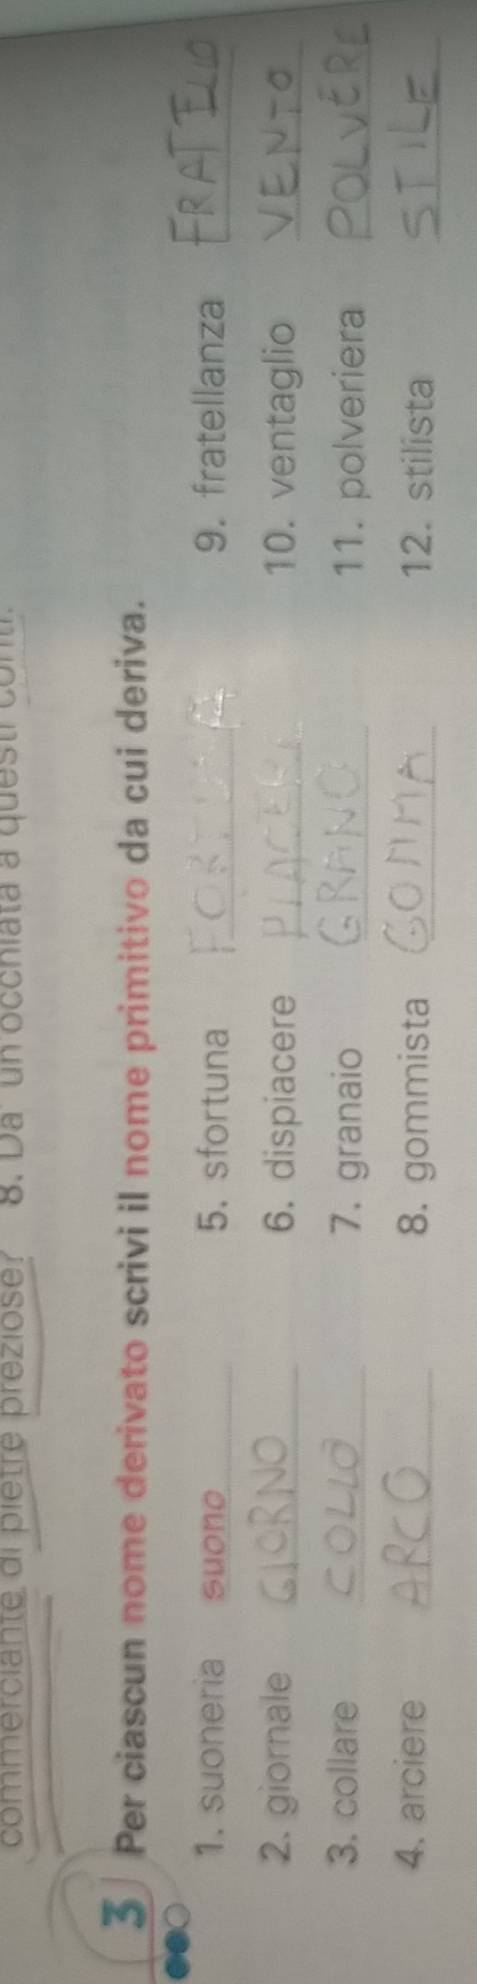 commerciante di pietre preziose? 8. Da' un'occhiata a questi conti.
3 Per ciascun nome derivato scrivi il nome primitivo da cui deriva.
1. suoneria suono
2. giornale GIORNO
3. collare COLLO
4. arciere ARCO
5. sfortuna FORTUNA
6. dispiacere PIACERE
7. granaio GRANO
8. gommista GOMMA
9. fratellanza FRATELLO
10. ventaglio VENTO
11. polveriera POLVERE
12. stilista STILE